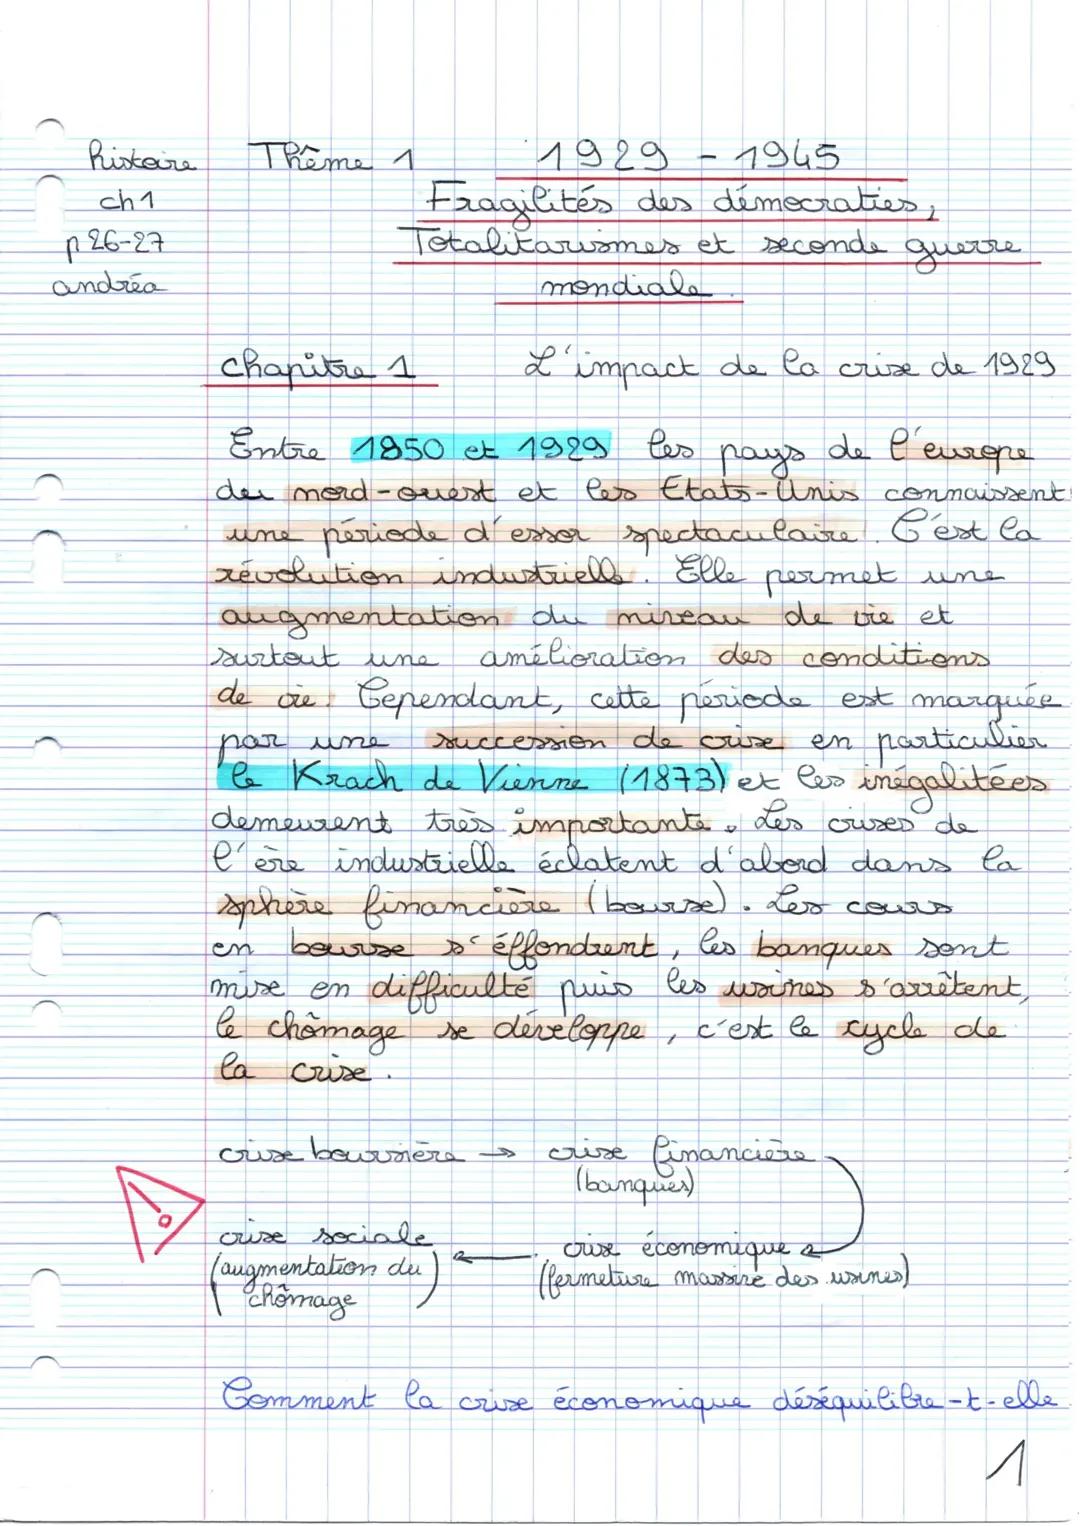 histoire Thême 1 1929 - 1945
ch 1 Fragilités des démocraties,
p 26-27 Totalitarismes et seconde guerre
andréa mondiale.
chapitre 1 L'impact de la crise de 1929
Entre 1850 et 1929 les pays de l'europe
du nord-ouest et les Etats-Unis connaissent
une période d'essor spectaculaire. C'est la
révolution industrielle. Elle permet une
augmentation du niveau de vie et
surtout une amélioration des conditions
de vie. Cependant, cette période est marquée
par une succession de crise en particulier
le Krach de Vienne (1873) et les inégalitées
demeurent très importante. Les crises de
l'ère industrielle éclatent d'abord dans la
sphère financière (bourse). Les cours
en bourse s'éffondrent, les banques sont
mise en difficulté puis les usines s'arrêtent,
le chômage se développe, c'est le cycle de
la crise.
crise boursière → crise financière
(banques)
!
crise sociale ← crise économique
(augmentation du (fermeture massive des usines)
chômage)
Comment la crise économique déséquilibre-t-elle
1